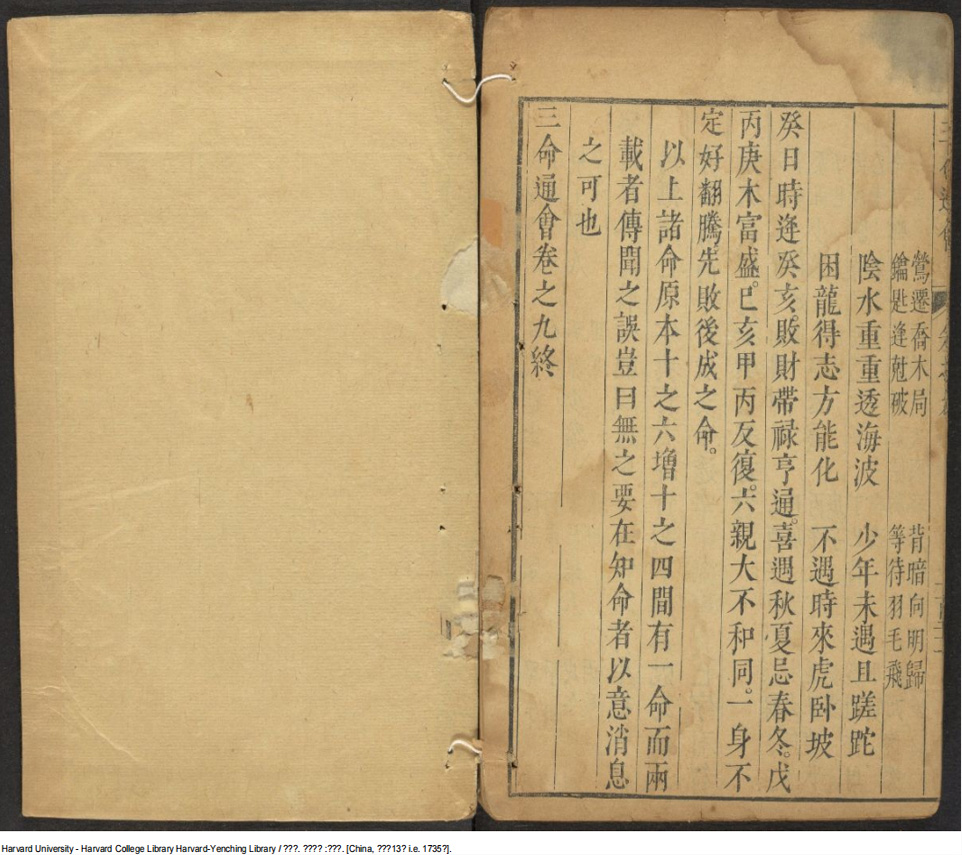 鶯遷喬木局　背暗向明歸
鑰匙逢尅破　等待羽毛飛
陰水重重透海波　少年未遇且蹉跎
困龍得志方能化　不遇時來虎卧坡
癸日時逢癸亥。敗財帶祿亨通。喜遇秋夏忌春冬。戊
丙庚木富盛。巳亥甲丙反復。六親大不和同。一身不
定好翻騰。先敗後成之命。
以上諸命原本十之六增十之四間有一命而兩
載者傳聞之誤豈曰無之要在知命者以意消息
之可也
三命通會卷之九終
Harvard University - Harvard College Library Harvard-Yenching Library / ???. ???? :???. [China, ???13? i.e. 1735?].